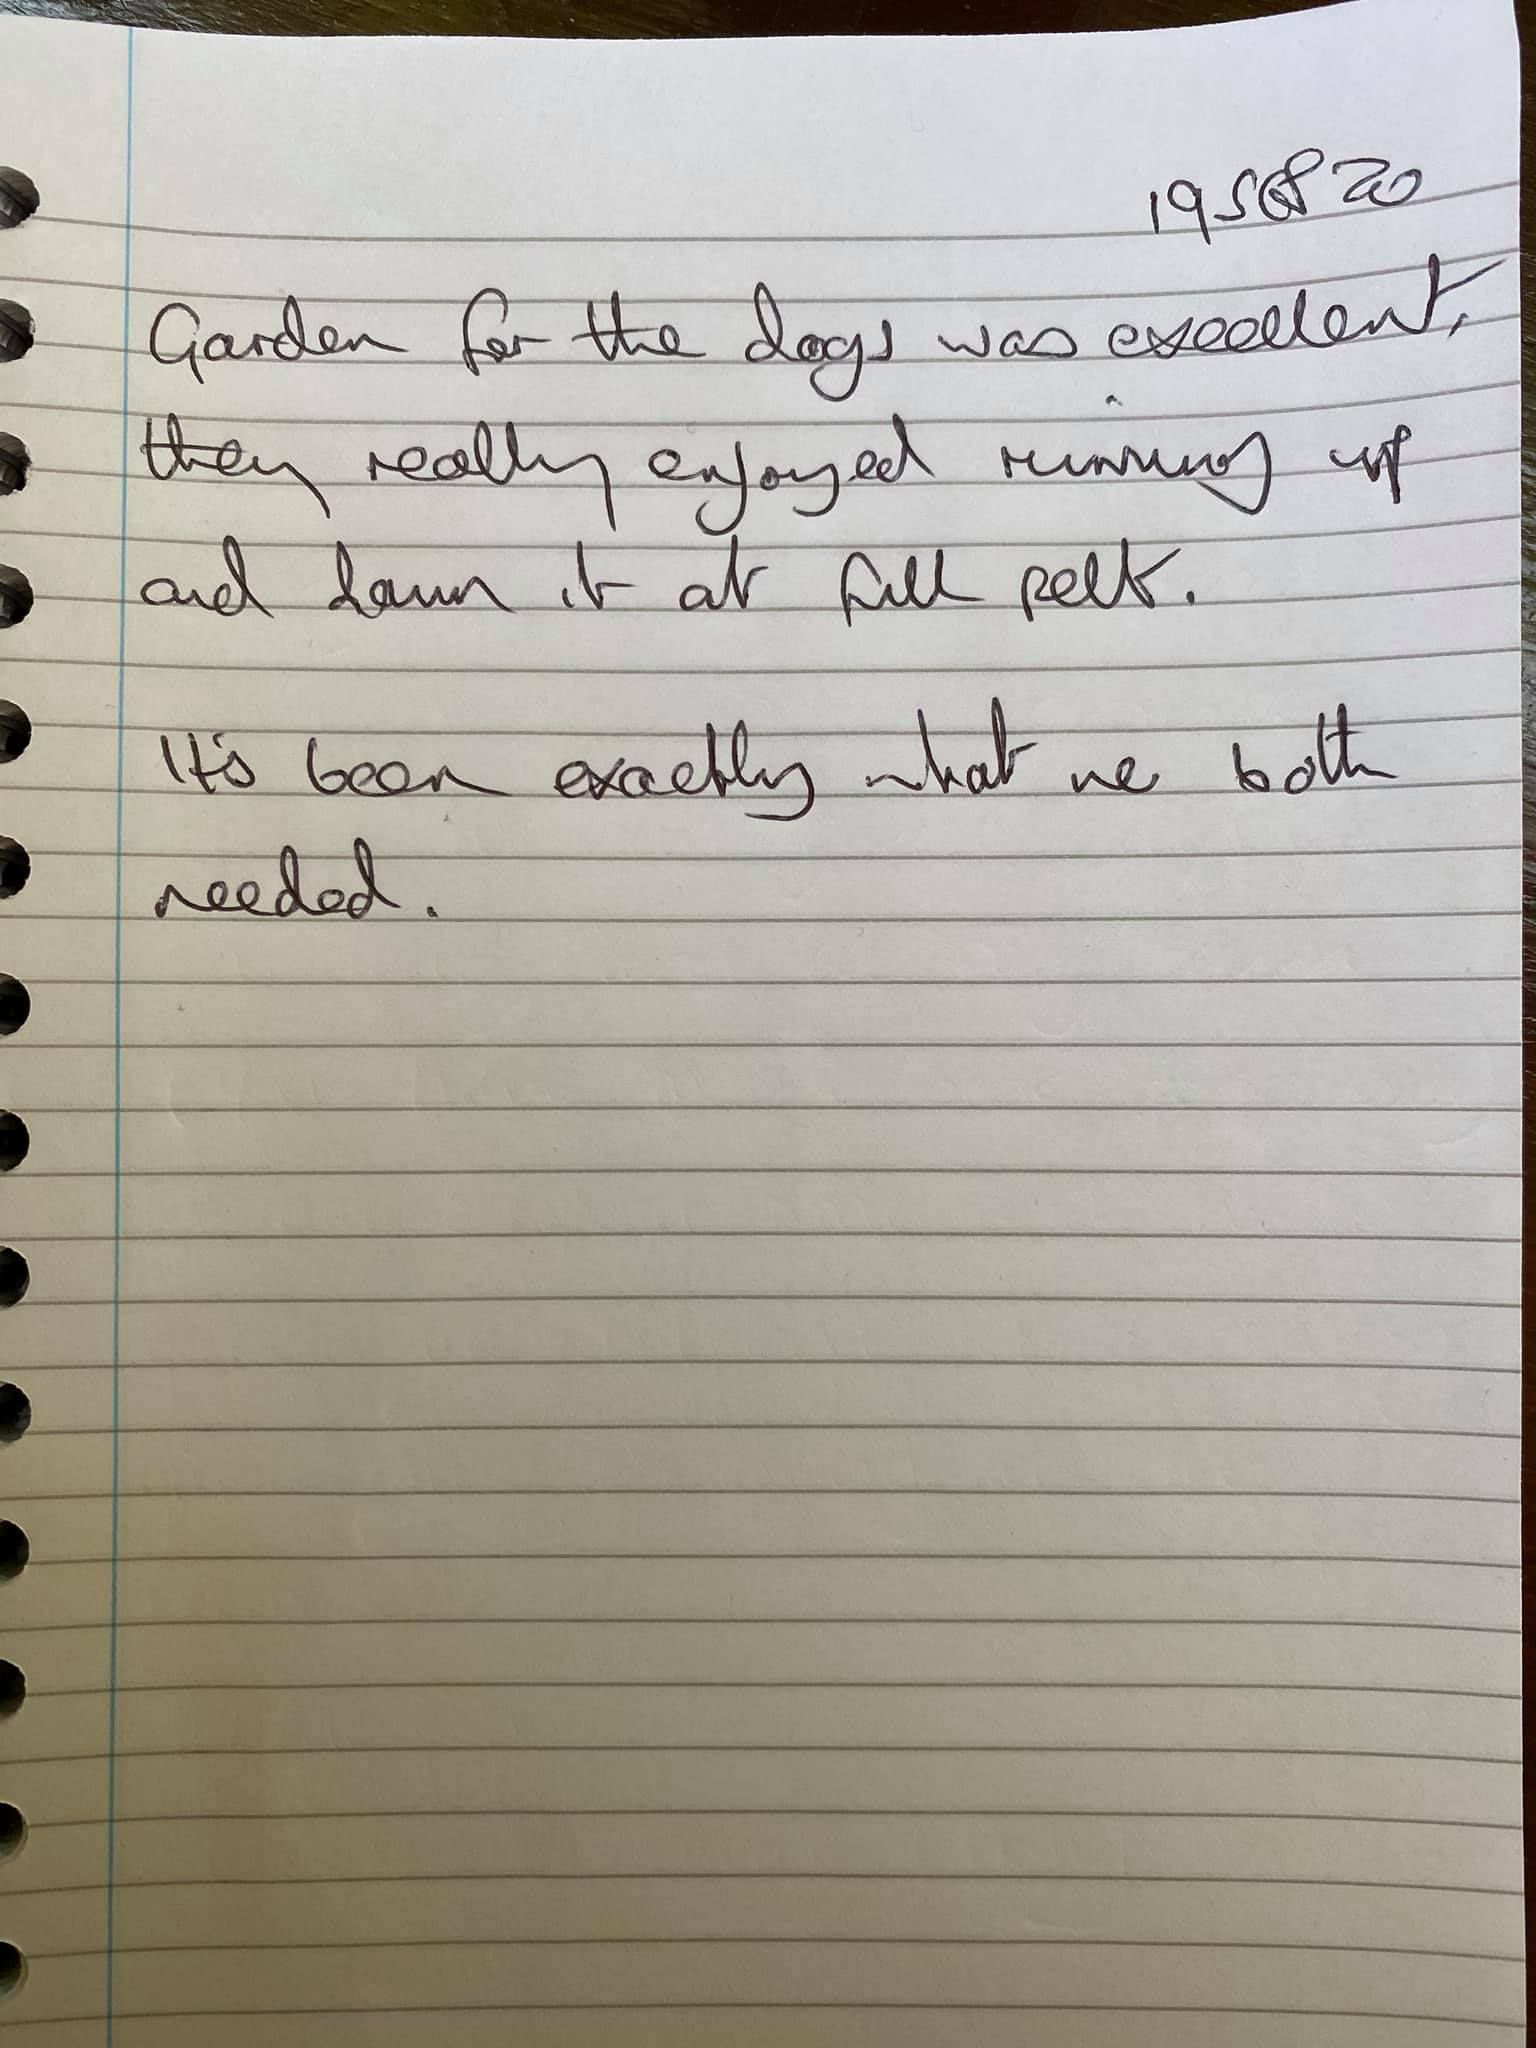 195820
Garden for the dogs was excellent,
they really enjoyed running up
and down it at full pelt.
It's been exactly what we both
needed.